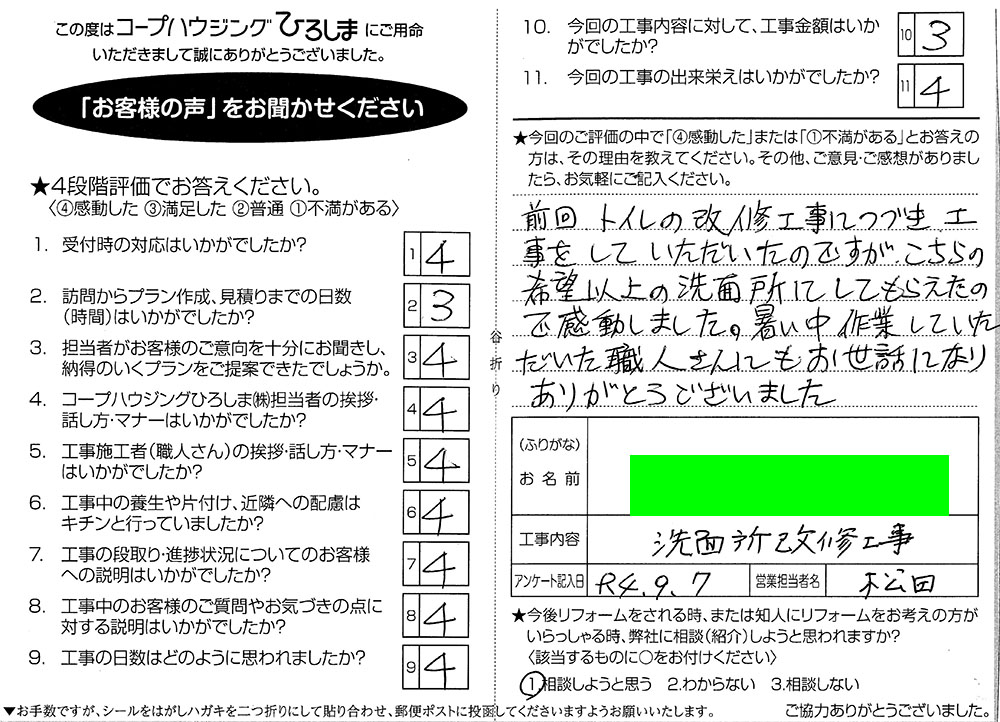 この度はコープハウジングひろしまにご用命
いただきまして誠にありがとうございました。
「お客様の声」をお聞かせください
★4段階評価でお答えください。
〈④感動した ③満足した ②普通 ①不満がある〉
1. 受付時の対応はいかがでしたか?
1 4
2. 訪問からプラン作成、見積りまでの日数
（時間）はいかがでしたか?
2 3
3. 担当者がお客様のご意向を十分にお聞きし、
納得のいくプランをご提案できたでしょうか。
3 4
4. コープハウジングひろしま㈱担当者の挨拶・
話し方・マナーはいかがでしたか?
4 4
5. 工事施工者（職人さん）の挨拶・話し方・マナー
はいかがでしたか?
5 4
6. 工事中の養生や片付け、近隣への配慮は
キチンと行っていましたか?
6 4
7. 工事の段取り・進捗状況についてのお客様
への説明はいかがでしたか?
7 4
8. 工事中のお客様のご質問やお気づきの点に
対する説明はいかがでしたか?
8 4
9. 工事の日数はどのように思われましたか?
9 4
▼お手数ですが、シールをはがしハガキを二つ折りにして貼り合わせ、郵便ポストに投函してくださいますようお願いいたします。
谷折り
10. 今回の工事内容に対して、工事金額はいか
がでしたか?
10 3
11. 今回の工事の出来栄えはいかがでしたか?
11 4
★今回のご評価の中で「④感動した」または「①不満がある」とお答えの
方は、その理由を教えてください。その他、ご意見・ご感想がありまし
たら、お気軽にご記入ください。
前回 トイレの改修工事につづき 工
事をして いただいたのですが、こちらの
希望以上の洗面所にしてもらえたの
で感動しました。暑い中 作業していた
だいた職人さんにもお世話になり
ありがとうございました
（ふりがな）
お名前
工事内容 洗面所改修工事
アンケート記入日 R4.9.7 営業担当者名 松田
★今後リフォームをされる時、または知人にリフォームをお考えの方が
いらっしゃる時、弊社に相談（紹介）しようと思われますか?
〈該当するものに○をお付けください〉
1.相談しようと思う 2.わからない 3.相談しない
ご協力ありがとうございました。